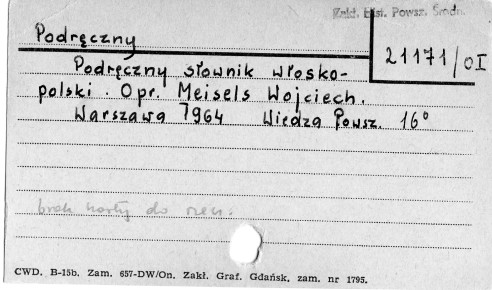 Zakł. Hist. Powsz. Średn.
Podręczny
21171/OI
Podręczny słownik włosko-
polski. Opr. Meisels Wojciech.
Warszawa 1964 Wiedza Powsz. 16°
brak karty do
CWD. B-15b. Zam. 657-DW/On. Zakł. Graf. Gdańsk, zam. nr 1795.